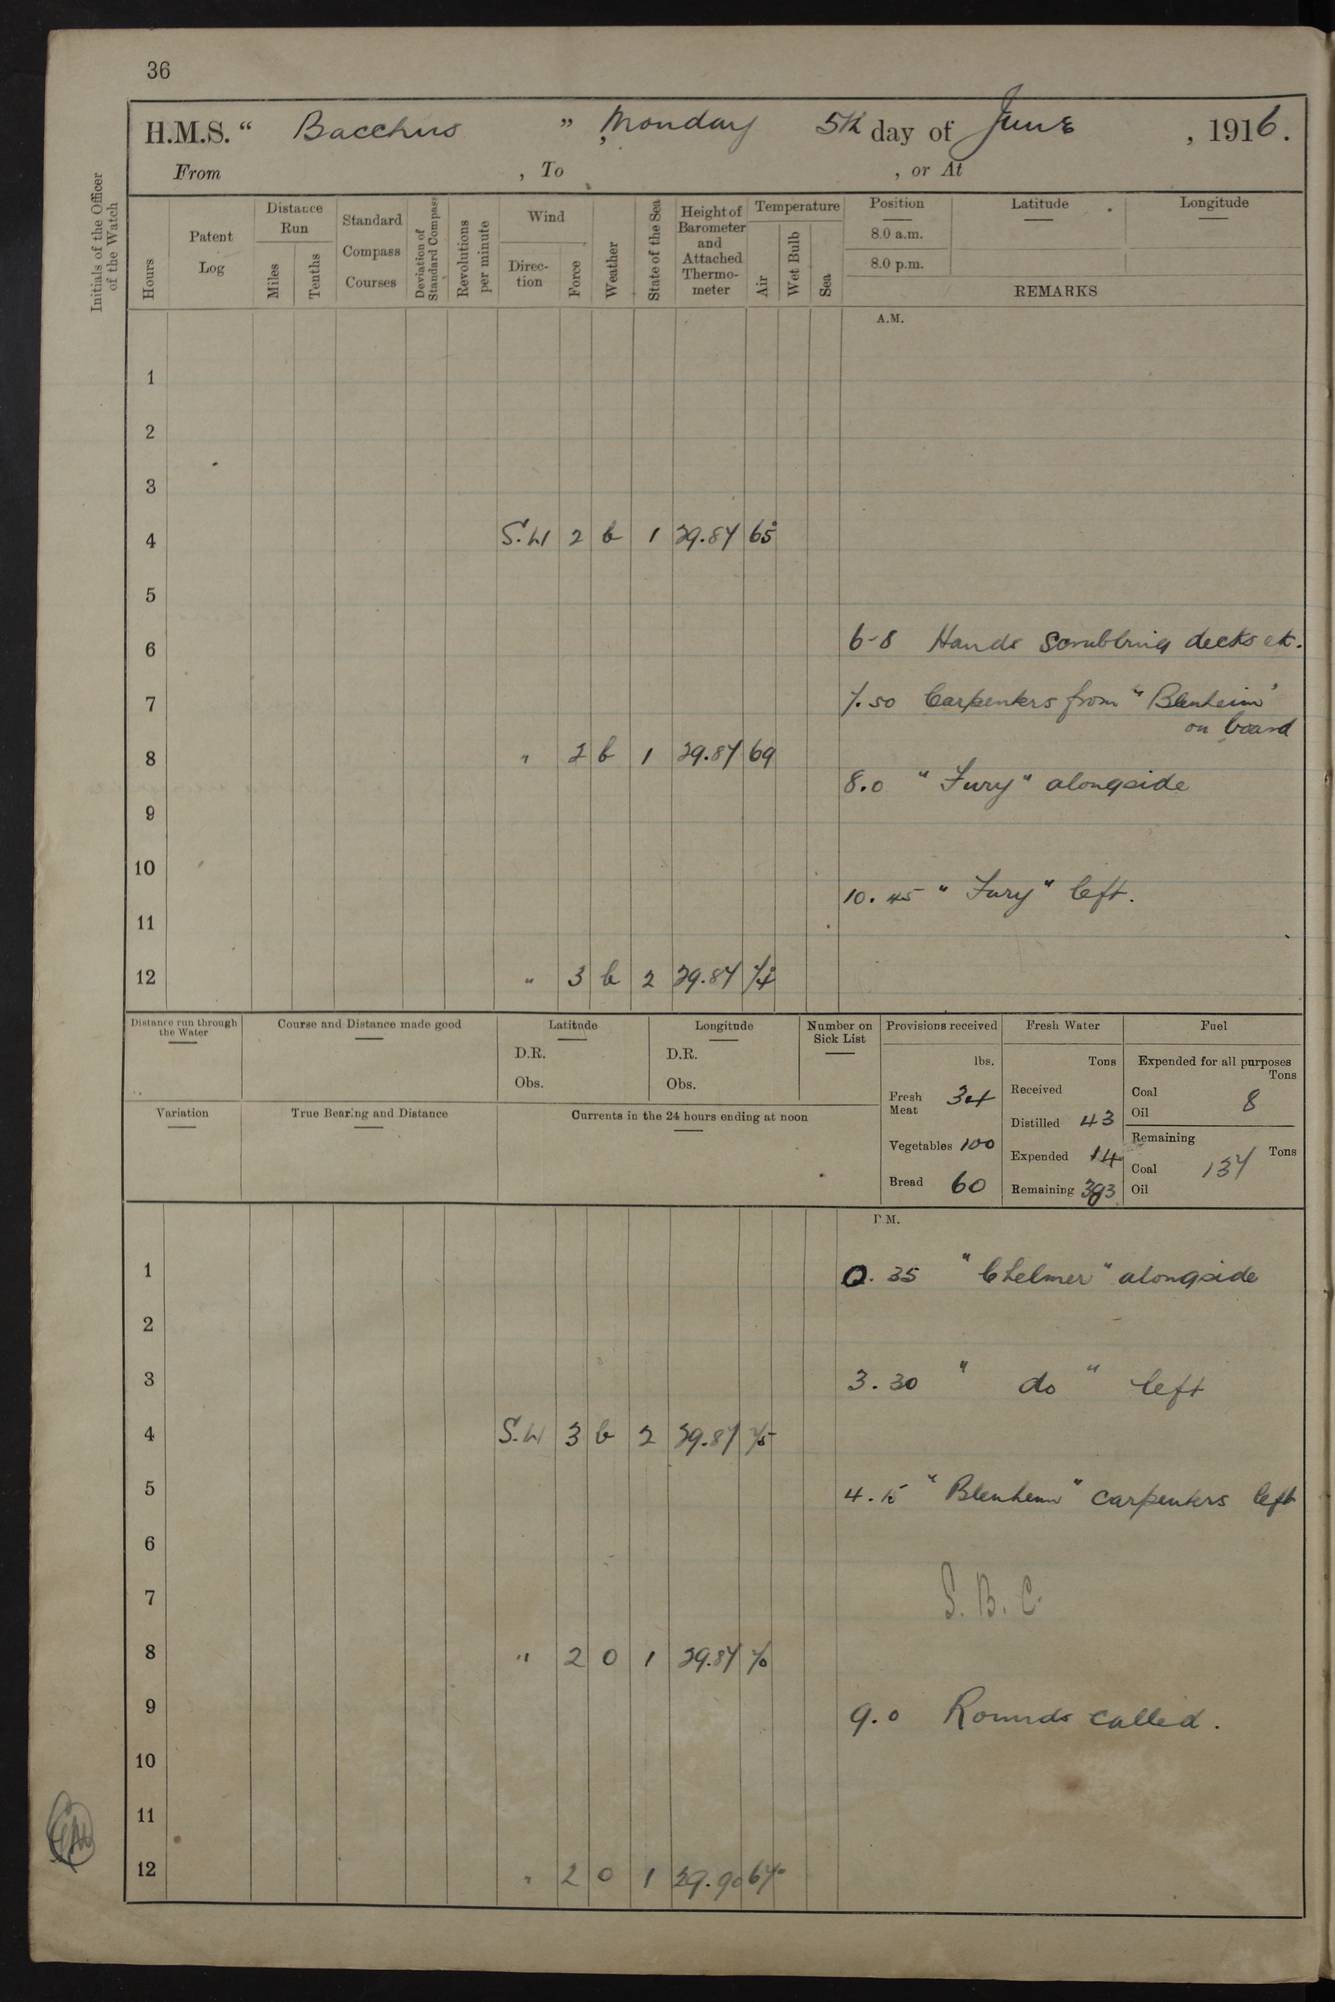 36
H.M.S. “ Bacchus ” Monday 5th day of June , 1916.
From , To , or At
Initials of the Officer of the Watch
Hours
Patent Log
Distance Run
Miles
Tenths
Standard Compass Courses
Deviation of Standard Compass
Revolutions per minute
Wind
Direction
Force
Weather
State of the Sea
Height of Barometer and Attached Thermometer
Temperature
Air
Wet Bulb
Sea
Position
8.0 a.m.
8.0 p.m.
Latitude
Longitude
REMARKS
A.M.
1
2
3
4 S.W 2 b 1 29.87 65
5
6 6-8 Hands Scrubbing decks etc.
7 7.50 Carpenters from "Blenheim"
on board
8 " 2 b 1 29.87 69
8.0 "Fury" alongside
9
10
10.45 "Fury" left.
11
12 " 3 b 2 29.87 74
Distance run through the Water
Course and Distance made good
Latitude
D.R.
Obs.
Longitude
D.R.
Obs.
Number on Sick List
Provisions received
lbs.
Fresh Meat 34
Vegetables 100
Bread 60
Fresh Water
Tons
Received
Distilled 43
Expended 14
Remaining 393
Fuel
Expended for all purposes
Tons
Coal 8
Oil
Remaining
Tons
Coal 137
Oil
Variation
True Bearing and Distance
Currents in the 24 hours ending at noon
P.M.
1 0.35 "Chelmer" alongside
2
3 3.30 " do " left
4 S.W 3 b 2 29.87 75
5 4.15 "Blenheim" carpenters left
6
7 S.B.C.
8 " 2 0 1 29.87 70
9 9.0 Rounds called.
10
11
12 " 2 0 1 29.90 67